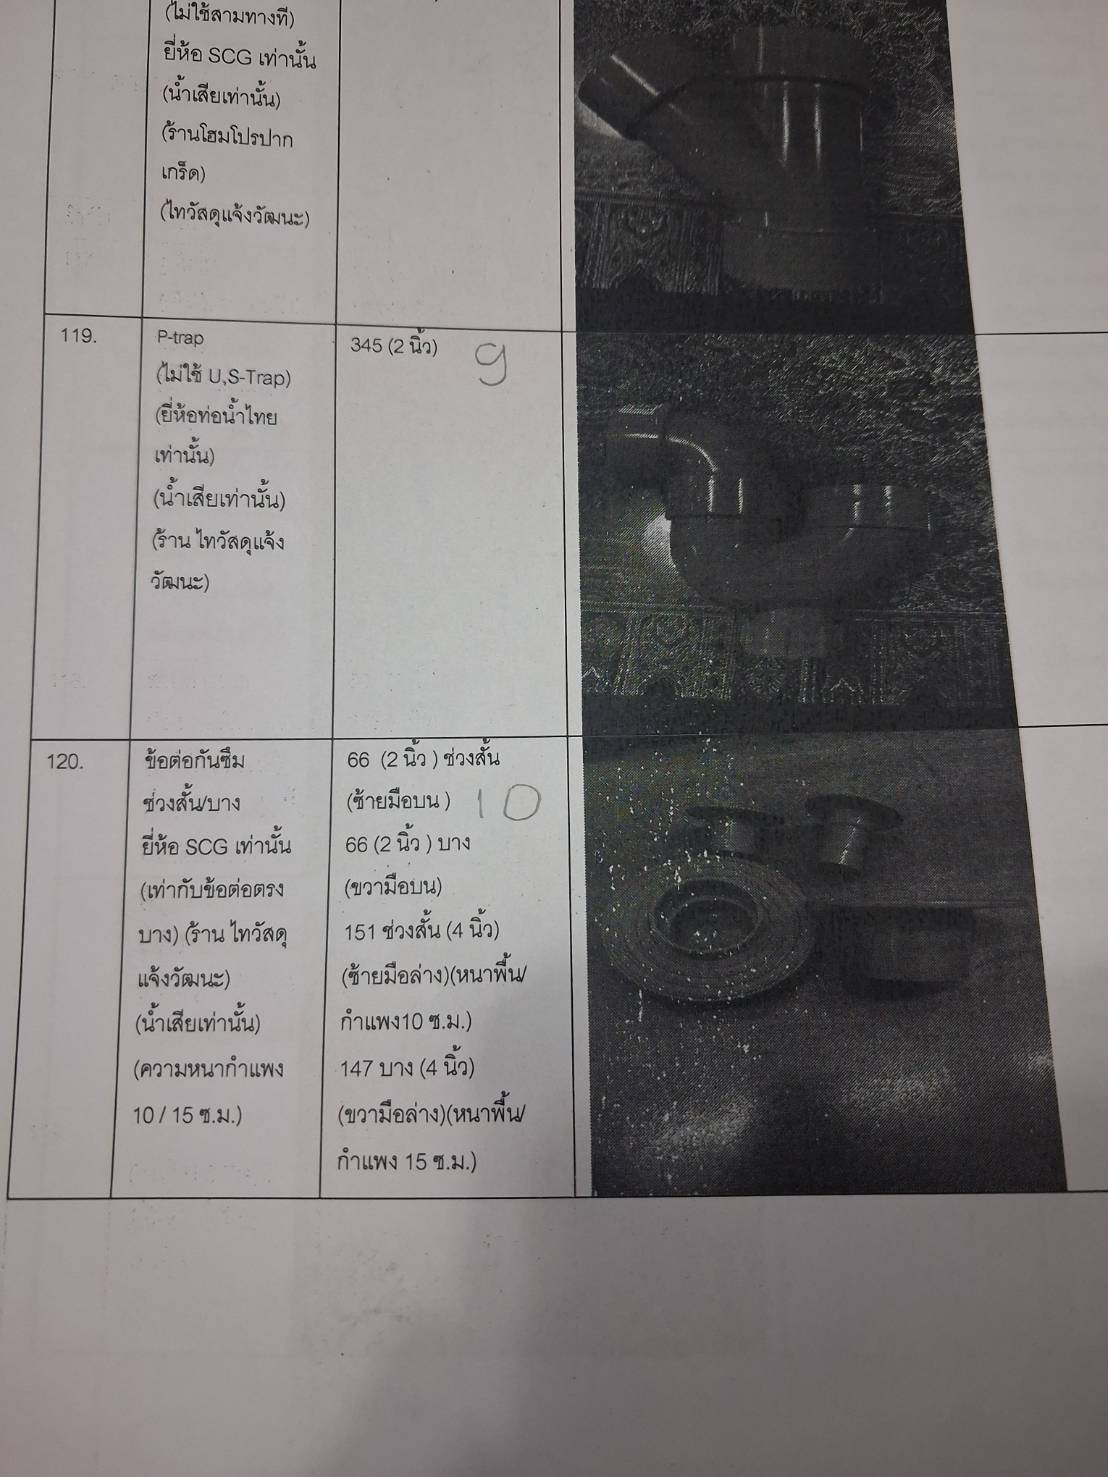 (ไม่ใช้สามทางที)
ยี่ห้อ SCG เท่านั้น
(น้ำเสียเท่านั้น)
(ร้านโฮมโปรปาก
เกร็ด)
(ไทวัสดุแจ้งวัฒนะ)
119.
P-trap
(ไม่ใช้ U,S-Trap)
(ยี่ห้อท่อน้ำไทย
เท่านั้น)
(น้ำเสียเท่านั้น)
(ร้าน ไทวัสดุแจ้ง
วัฒนะ)
345 (2 นิ้ว)
9
120.
ข้อต่อกันซึม
ช่วงสั้น/บาง
ยี่ห้อ SCG เท่านั้น
(เท่ากับข้อต่อตรง
บาง) (ร้าน ไทวัสดุ
แจ้งวัฒนะ)
(น้ำเสียเท่านั้น)
(ความหนากำแพง
10 / 15 ซ.ม.)
66 (2 นิ้ว ) ช่วงสั้น
(ซ้ายมือบน )
10
66 (2 นิ้ว ) บาง
(ขวามือบน)
151 ช่วงสั้น (4 นิ้ว)
(ซ้ายมือล่าง)(หนาพื้น/
กำแพง10 ซ.ม.)
147 บาง (4 นิ้ว)
(ขวามือล่าง)(หนาพื้น/
กำแพง 15 ซ.ม.)